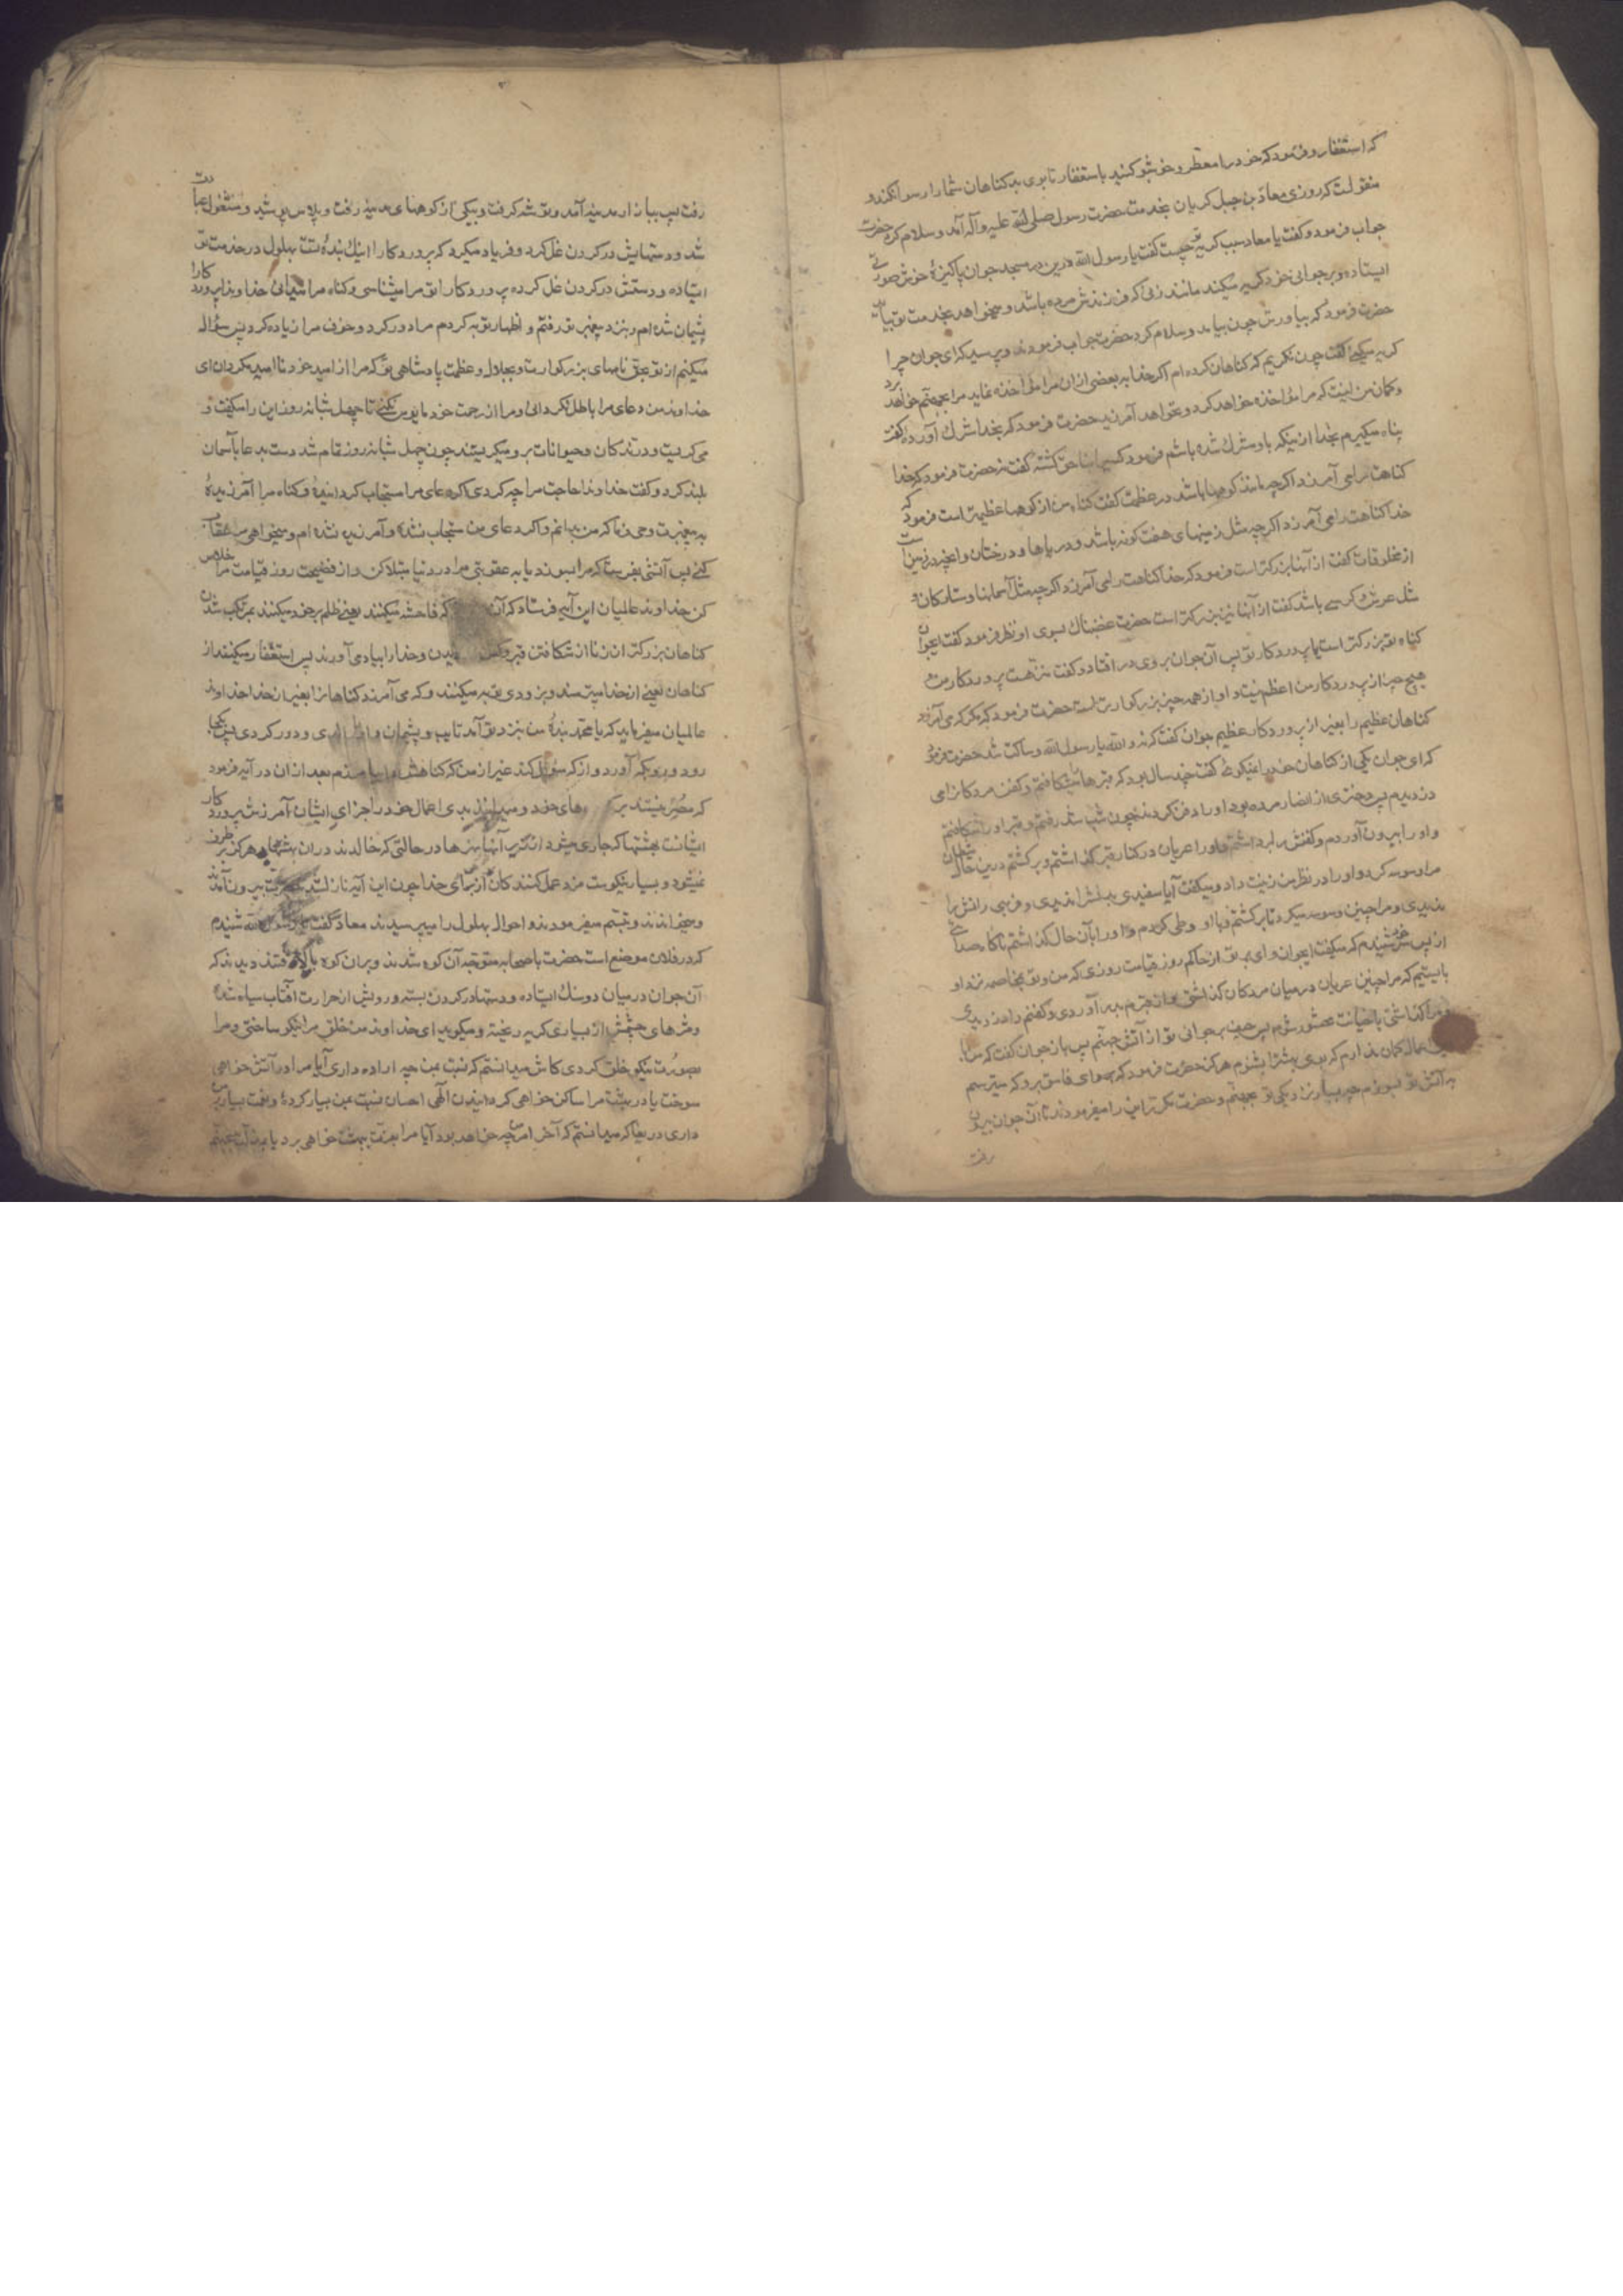 که استغفار و فرمود که خود را معطر و خوشبو کنید باستغفار تا بوی بد کناهان شما را رسوا نکند و
منقولست که روزی معاذ بن جبل کریان بخدمت حضرت رسول صلی الله علیه وآله آمد و سلام کرد حضرت
جواب فرمود و کفت یا معاذ سبب کریهٔ تو چیست کفت یا رسول الله درین در مسجد جوان پاکیزهٔ خوش صورتی
ایستاده و بر جوانی خود کریه میکند مانند زنی که فرزندش مرده باشد و میخواهد بخدمت تو بیاید
حضرت فرمود که بیاورش چون بیامد و سلام کرد حضرت جواب فرمودند و پرسید که ای جوان چرا
کریه میکنی کفت چون نکریم که کناهان کرده‌ام اکر خدا به بعضی از ان مرا مؤاخذه نماید مرا بجهنم خواهد برد
و کمان من اینست که مرا مؤاخذه خواهد کرد و نخواهد آمرزید حضرت فرمود که بخدا شرک آورده کفت
پناه میکیرم بخدا از اینکه باو مشرک شده باشم فرمود کسی را بناحق کشتهٔ کفت نه حضرت فرمود که خدا
کناهت را می آمرزد اکرچه مانند کوهها باشد در عظمت کفت کناه من از کوهها عظیمتر است فرمود که
خدا کناهت را می آمرزد اکرچه مثل زمینهای هفت کونه باشد و دریاها و درختان و انچه در زمین است
از مخلوقات کفت از آنها بزرکتر است فرمود که خدا کناهت را می آمرزد اکرچه مثل آسمانها و ستارکان و
مثل عرش و کرسی باشد کفت از آنها نیز بزرکتر است حضرت غضبناک بسوی او نظر فرمود کفت ایجوان
کناه تو بزرکتر است یا پروردکار تو پس آن جوان بروی در افتاد و کفت منزهست پروردکار من و
هیچ چیز از پروردکار من اعظم نیست و او از همه چیز بزرکوارتر است حضرت فرمود که مکر که می آمرزد
کناهان عظیم را بغیر از پروردکار عظیم جوان کفت که نه والله یا رسول الله و ساکت شد حضرت فرمود
که ای جوان یکی از کناهان خود را نمیکوئی کفت چند سال بود که قبرها میشکافتم و کفن مردکان را می
دزدیدم پس دختری از انصار مرده بود او را دفن کردند چون شب شد رفتم و قبر او را شکافتم
و او را بیرون آوردم و کفنش را برداشتم و او را عریان در کنار قبر کذاشتم و برکشتم درین حال شیطان
مرا وسوسه کرد و او را در نظر من زینت داد و میکفت آیا سفیدی بدنش را ندیدی و فربهی رانش را
ندیدی و مرا چنین وسوسه میکرد تا برکشتم و با او وطی کردم و او را بآن حال کذاشتم ناکاه صدائی
از پس خود شنیدم که میکفت ایجوان وای بر تو از حاکم روز قیامت روزی که من و تو بمخاصمه نزد او
بایستیم که مرا چنین عریان در میان مردکان کذاشتی و از قبرم بدر آوردی و کفنم را دزدیدی
و مرا کذاشتی با جنابت محشور شوم پس حیف بر جوانی تو از آتش جهنم پس باز جوان کفت که من با
اعمال کمان ندارم که بوی بهشت را بشنوم هرکز حضرت فرمود که ای فاسق برو که میترسم
به آتش تو بسوزم چه بسیار نزدیکی تو بجهنم و حضرت مکرر این را میفرمود تا آن جوان بیرون
رفت
رفت پس ببازار مدینه آمد و توشه کرفت و بیکی از کوههای مدینه رفت و پلاس پوشید و مشغول عبادت
شد و دستهایش در کردن غل کرد و فریاد میکرد که پروردکارا اینک بندهٔ تست بهلول در خدمت تو
ایستاده و دستش در کردن غل کرده پروردکارا تو مرا میشناسی و کناه مرا میدانی خداوندا پروردکارا
پشیمان شده‌ام و بنزد پیغمبر تو رفتم و اظهار توبه کردم مرا دور کرد و خوف مرا زیاده کرد پس سؤال
میکنم از تو بحق نامهای بزرکوارت و بجلال و عظمت پادشاهی تو که مرا از امید خود نا امید نکردان ای
خداوند من و دعای مرا باطل نکردانی و مرا از رحمت خود مایوس نکنی تا چهل شبانه روز این را میکفت و
می کریست و درندکان و حیوانات بر او میکریستند چون چهل شبانه روز تمام شد دست بدعا بآسمان
بلند کرد و کفت خداوندا حاجت مرا چه کردی اکر دعای مرا مستجاب کردانیدهٔ و کناه مرا آمرزیدهٔ
به پیغمبرت وحی فرما که من بدانم و اکر دعای من مستجاب نشده و آمرزیده نشده ام و میخواهی مرا عقاب
کنی پس آتشی بفرست که مرا بسوزد یا به عقوبتی مرا در دنیا مبتلا کن و از فضیحت روز قیامت مرا خلاص
کن خداوند عالمیان این آیه فرستاد که آن که فاحشه میکنند یعنی ظلم بر خود میکنند بمرتکب شدن
کناهان بزرکتر از زنا از شکافتن قبر و کفن دزدیدن و خدا را بیاد می آورند پس استغفار میکنند از
کناهان یعنی از خدا میترسند و بزودی توبه میکنند و که می آمرزد کناهانرا بغیر از خدا خداوند
عالمیان میفرماید که یا محمد بندهٔ من بنزد تو آمد تایب و پشیمان و او را راندی و دور کردی پس کجا
رود و رو بکه آورد و از که سؤال کند غیر از من که کناهش را بیامرزم بعد از ان در آیه فرمود
که مصر نیستند بر های خود و میدانند بدی اعمال خود را جزای ایشان آمرزش پروردکار
ایشانست و بهشتها که جاری میشود از زیر آنها نهرها در حالتی که خالدند دران بهشتها و هرکز برطرف
نمیشود و بسیار نیکوست مزد عمل کنندکان از برای خدا چون این آیه نازل شد حضرت بیرون آمدند
و میخواندند و تبسم میفرمودند و احوال بهلول را میپرسیدند معاذ کفت یا رسول الله شنیدم
که در فلان موضع است حضرت با صحابه متوجه آن کوه شدند و بران کوه بالا رفتند دیدند که
آن جوان در میان دو سنک ایستاده و دستها در کردن بسته و رویش از حرارت آفتاب سیاه شده
و مژهای چشمش از بسیاری کریه ریخته و میکوید ای خداوند من خلق مرا نیکو ساختی و مرا
بصورت نیکو خلق کردی کاش میدانستم که نسبت بمن چه اراده داری آیا مرا در آتش خواهی
سوخت یا در بهشت مرا ساکن خواهی کردانیدن الهی احسان نسبت بمن بسیار کردهٔ و نعمت بسیار بر من
داری دریغا که میدانستم که آخر امر من چه خواهد بود آیا مرا بعزت ببهشت خواهی برد یا بمذلت بجهنم